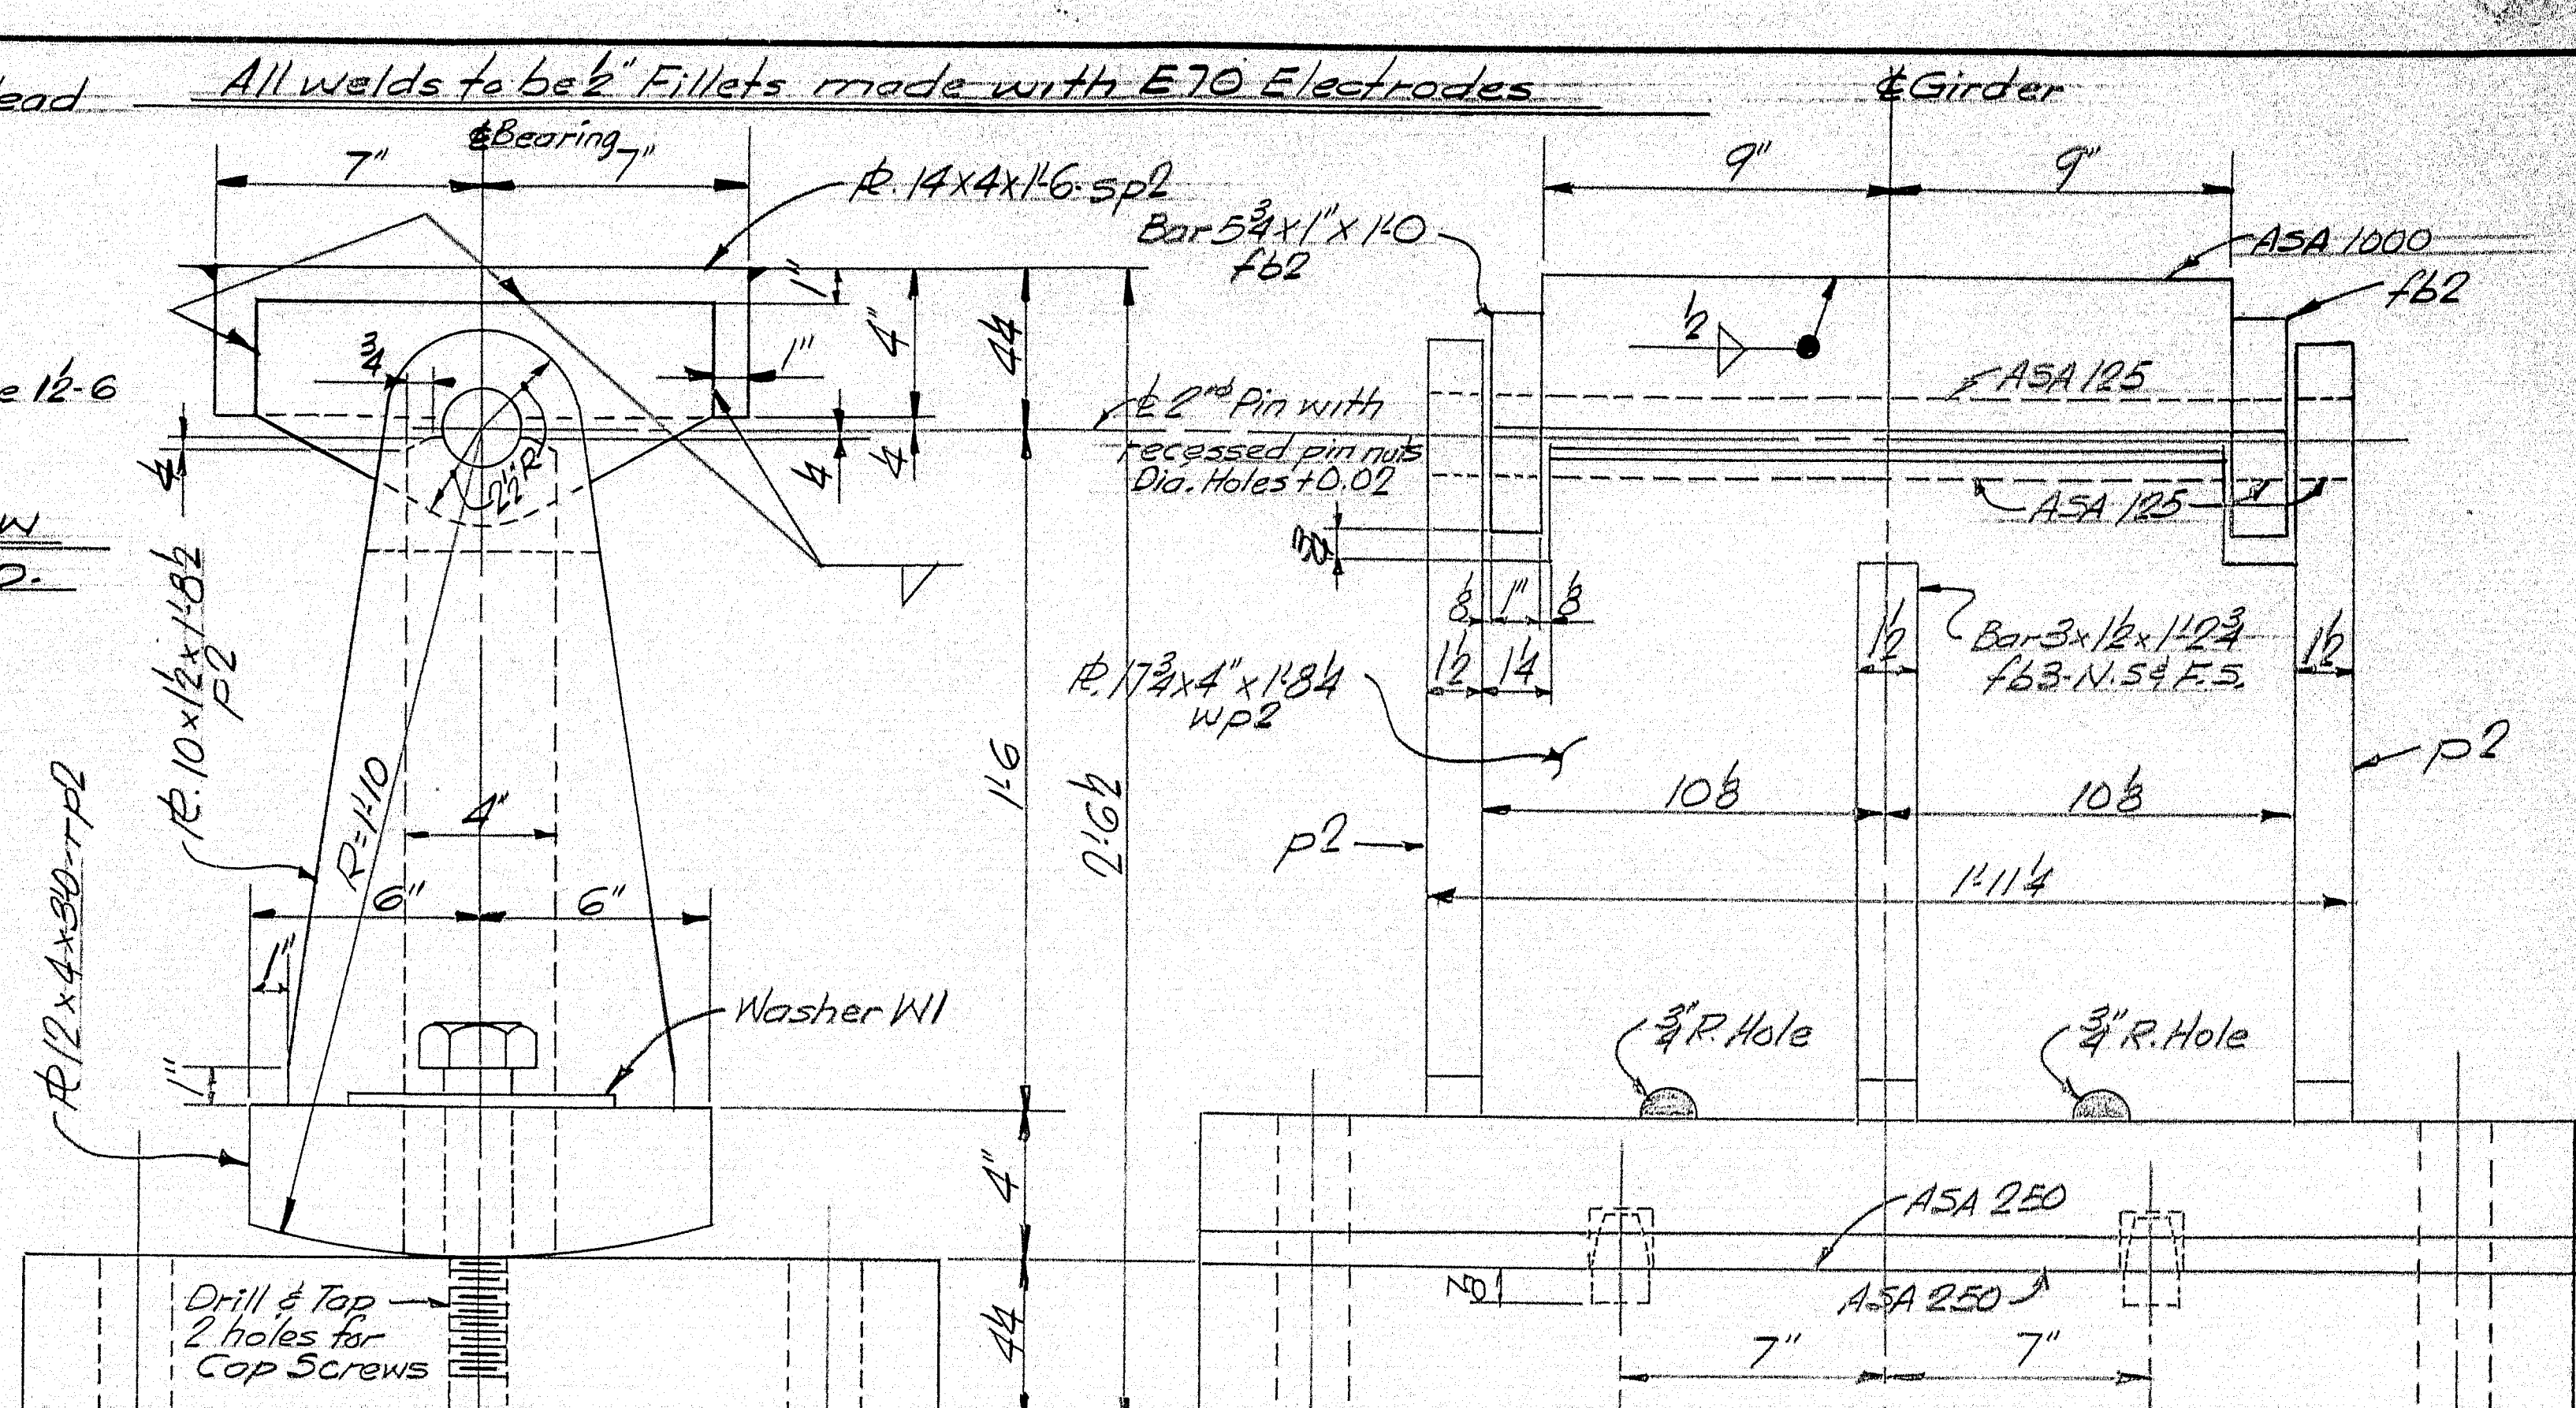 All welds to be ½" Fillets made with E70 Electrodes
℄ Girder
ead
℄ Bearing
7"
7"
9"
9"
℄. 14x4x1'-6-sp2
Bar 5¾x1"x1'-0
fb2
ASA 1000
fb2
1"
4"
4¼
¾
1"
½
ASA 125
e 1½-6
℄ 2nd Pin with
recessed pin nuts
Dia. Holes +0.02
¼
¼
¼
2½"R
ASA 125
W
⅛
1"
⅛
1½
1¼
1½
1½
Bar 3x1½x1'-2¾
fb3-N.S & F.S.
℄. 10x1½x1'-8½
p2
℄. 17¾x4"x1'-8¼
wp2
R=1'-10
4"
1'-6
2'-6½
10⅛
10⅛
p2
p2
1'-11¼
6"
6"
℄ 12x4x3'0-rp2
1"
1"
Washer W1
¾" R. Hole
¾" R. Hole
4"
ASA 250
ASA 250
Drill & Tap
2 holes for
Cap Screws
4¼
⅞
7"
7"